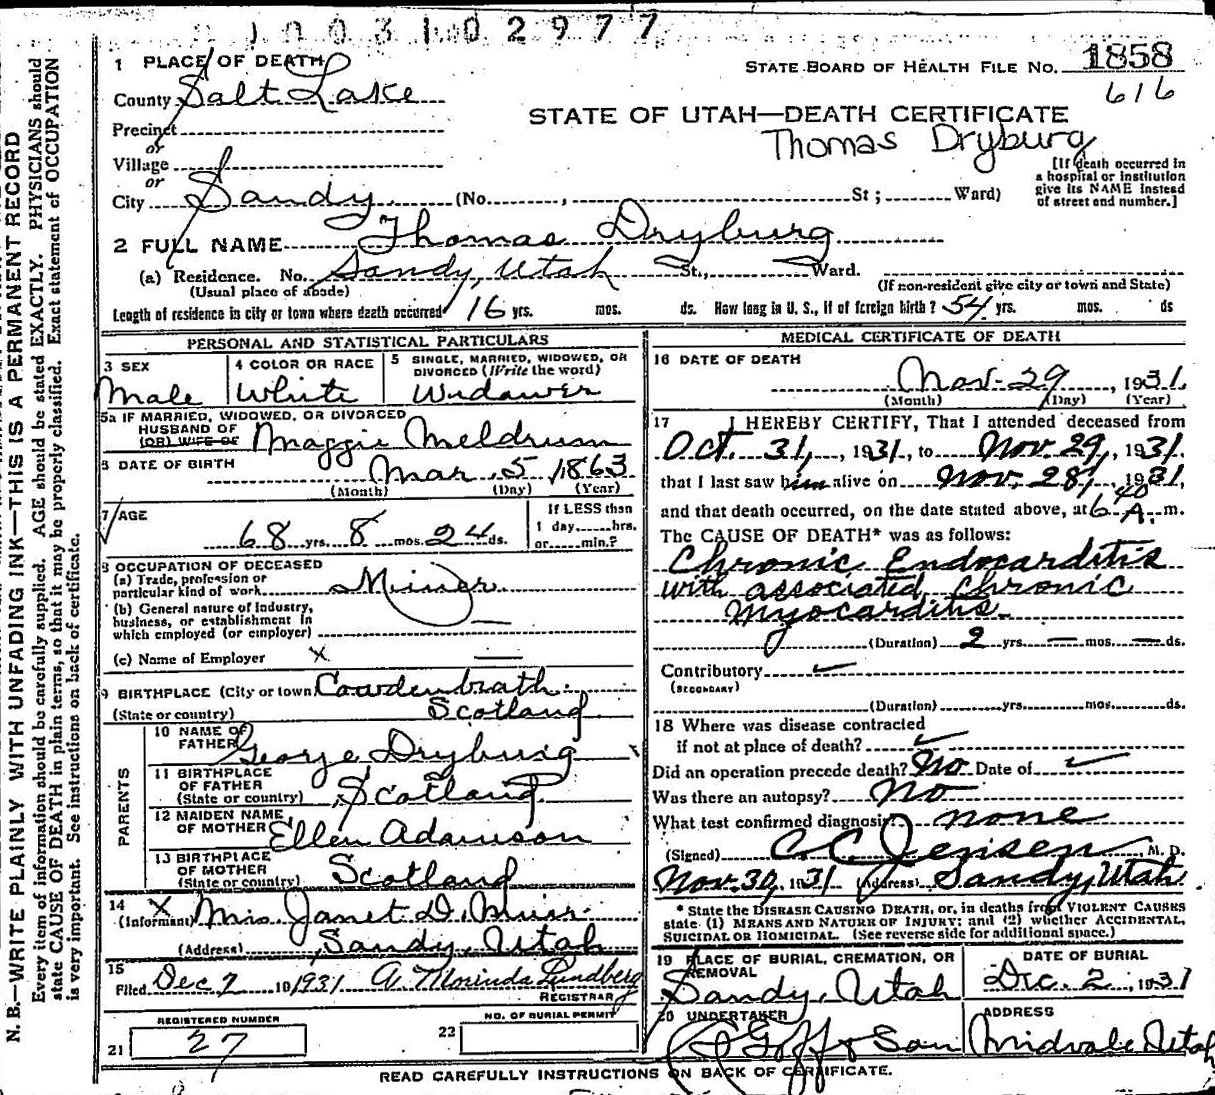 1003102977
1 PLACE OF DEATH
STATE BOARD OF HEALTH FILE NO. 1858
County Salt Lake
616
STATE OF UTAH—DEATH CERTIFICATE
Precinct
or
Thomas Dryburg
Village
or
[If death occurred in
a hospital or institution
give its NAME instead
of street and number.]
City Sandy (No. , St ; Ward)
2 FULL NAME Thomas Dryburg
(a) Residence. No. Sandy, Utah St., Ward.
(Usual place of abode) (If non-resident give city or town and State)
Length of residence in city or town where death occurred 16 yrs. mos. ds. How long in U. S., if of foreign birth? 54 yrs. mos. ds
PERSONAL AND STATISTICAL PARTICULARS
3 SEX
Male
4 COLOR OR RACE
White
5 SINGLE, MARRIED, WIDOWED, OR
DIVORCED (Write the word)
Widower
5a IF MARRIED, WIDOWED, OR DIVORCED
HUSBAND OF
(OR) WIFE OF Maggie Meldrum
6 DATE OF BIRTH Mar. 5, 1863
(Month) (Day) (Year)
7 AGE
68 yrs. 8 mos. 24 ds.
If LESS than
1 day,......hrs.
or......min.?
8 OCCUPATION OF DECEASED
(a) Trade, profession or
particular kind of work Miner
(b) General nature of Industry,
business, or establishment in
which employed (or employer) —
(c) Name of Employer x —
9 BIRTHPLACE (City or town) Cowdenbrath
(State or country) Scotland
PARENTS
10 NAME OF
FATHER George Dryburg
11 BIRTHPLACE
OF FATHER
(State or country) Scotland
12 MAIDEN NAME
OF MOTHER Ellen Adamson
13 BIRTHPLACE
OF MOTHER
(State or country) Scotland
14 X
(Informant) Mrs. Janet D. Muir
(Address) Sandy, Utah
15
Filed Dec 2 19 1931 A. Morinda Lundberg
REGISTRAR
REGISTERED NUMBER
21 27
NO. OF BURIAL PERMIT
22
MEDICAL CERTIFICATE OF DEATH
16 DATE OF DEATH
Nov. 29, 1931.
(Month) (Day) (Year)
17 I HEREBY CERTIFY, That I attended deceased from
Oct. 31, 1931, to Nov. 29, 1931.
that I last saw him alive on Nov. 28, 1931,
and that death occurred, on the date stated above, at 6 40 A. m.
The CAUSE OF DEATH* was as follows:
Chronic Endocarditis
with associated chronic
myocarditis
(Duration) 2 yrs. — mos. — ds.
Contributory
(SECONDARY)
(Duration) yrs. mos. ds.
18 Where was disease contracted
if not at place of death?
Did an operation precede death? No Date of
Was there an autopsy? No
What test confirmed diagnosis? none
(Signed) C. C. Jensen, M. D.
Nov. 30, 1931 (Address) Sandy, Utah.
* State the DISEASE CAUSING DEATH, or, in deaths from VIOLENT CAUSES
state (1) MEANS AND NATURE OF INJURY; and (2) whether ACCIDENTAL,
SUICIDAL OR HOMICIDAL. (See reverse side for additional space.)
19 PLACE OF BURIAL, CREMATION, OR
REMOVAL
Sandy, Utah
DATE OF BURIAL
Dec. 2, 1931
20 UNDERTAKER
Goff & Son
ADDRESS
Midvale Utah
READ CAREFULLY INSTRUCTIONS ON BACK OF CERTIFICATE.
N. B.—WRITE PLAINLY WITH UNFADING INK—THIS IS A PERMANENT RECORD
Every item of information should be carefully supplied. AGE should be stated EXACTLY. PHYSICIANS should
state CAUSE OF DEATH in plain terms, so that it may be properly classified. Exact statement of OCCUPATION
is very important. See instructions on back of certificate.